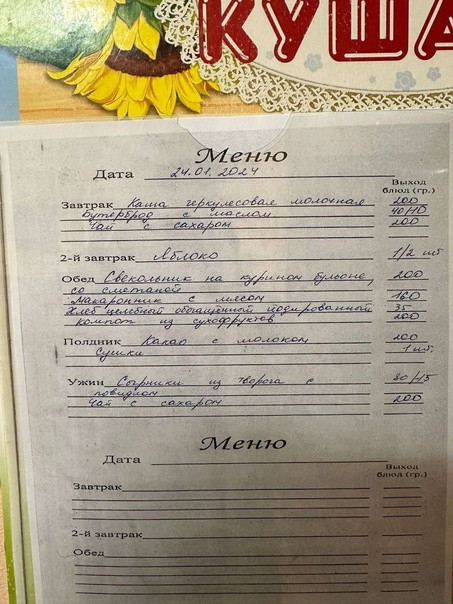 КУША
Меню
Дата 24.01.2024
Выход
блюд (гр.)
Завтрак Каша геркулесовая молочная 200
Бутерброд с маслом 40/10
Чай с сахаром 200
2-й завтрак Яблоко 1/2 шт
Обед Свекольник на курином бульоне, 200
со сметаной
Макаронник с мясом 160
Хлеб целебный обогащённый йодированный 35
компот из сухофруктов 200
Полдник Какао с молоком 200
Сушки 1 шт.
Ужин Сырники из творога с 30/15
повидлом
Чай с сахаром 200
Меню
Дата
Выход
блюд (гр.)
Завтрак
2-й завтрак
Обед